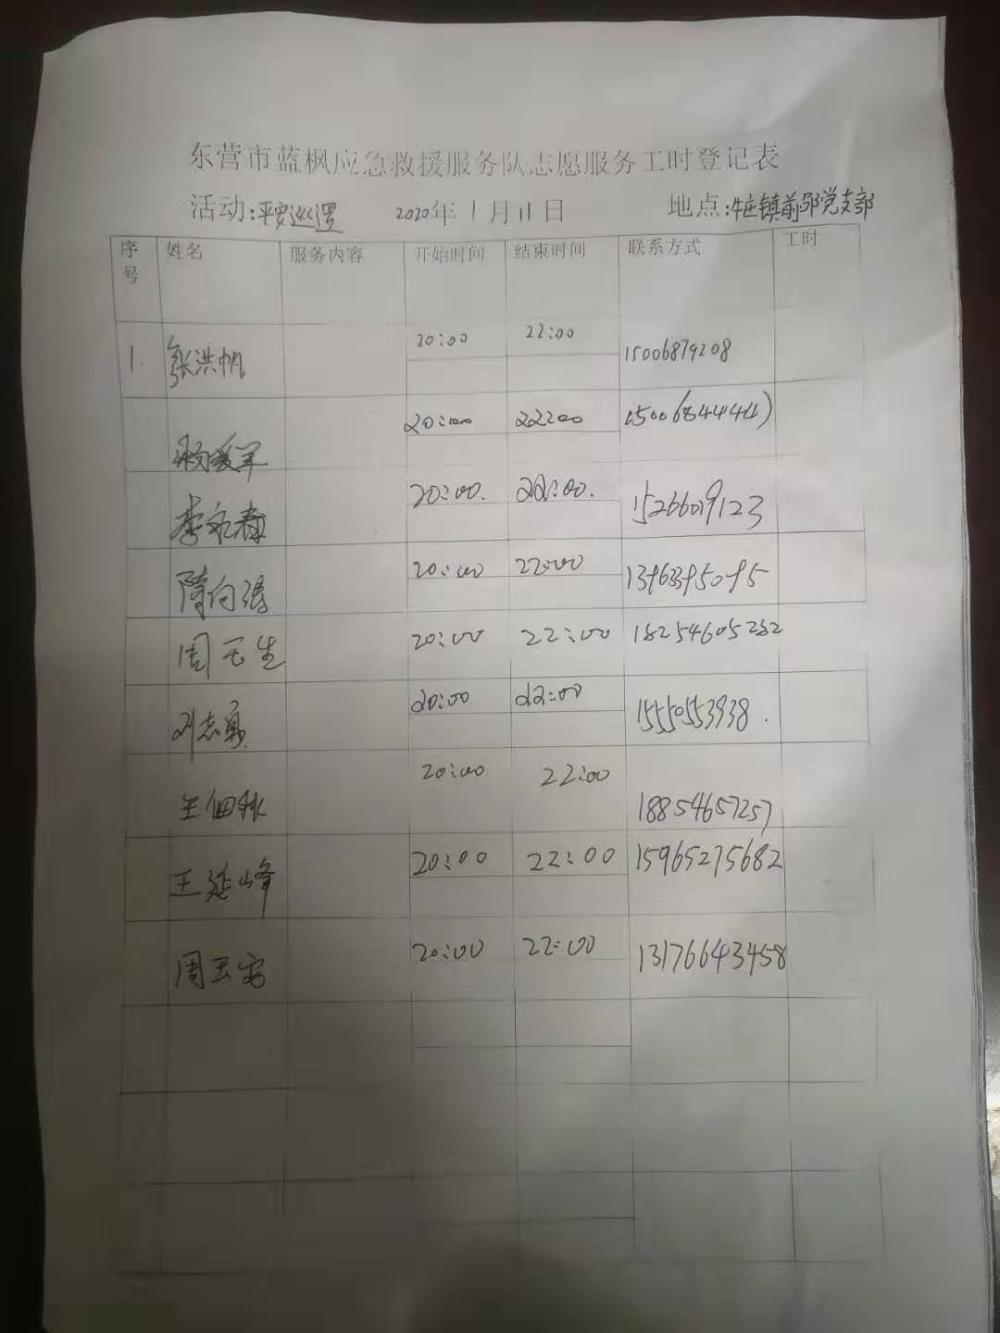 东营市蓝枫应急救援服务队志愿服务工时登记表
活动:平安巡逻 2020年1月11日 地点:牛庄镇前邵党支部
序号 姓名 服务内容 开始时间 结束时间 联系方式 工时
1. 张洪帆 20:00 22:00 15006879208
20:00 22:00
李永春 20:00. 22:00. 15266019123
隋向强 20:00 22:00 13963395095
周玉生 20:00 22:00 18254605282
刘志勇 20:00 22:00 15550553938.
20:00 22:00 18854657257
王延峰 20:00 22:00 15965275682
周玉宝 20:00 22:00 13176643458